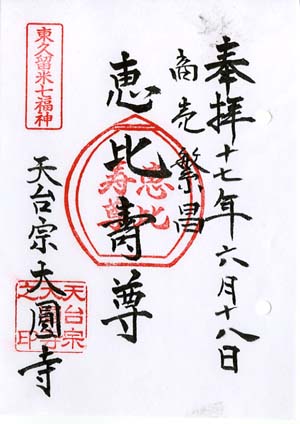 奉拝十七年六月十八日
商売繁昌
恵比壽尊
恵比
寿尊
東久留米七福神
天台宗大圓寺
天台宗
大圓寺
之印